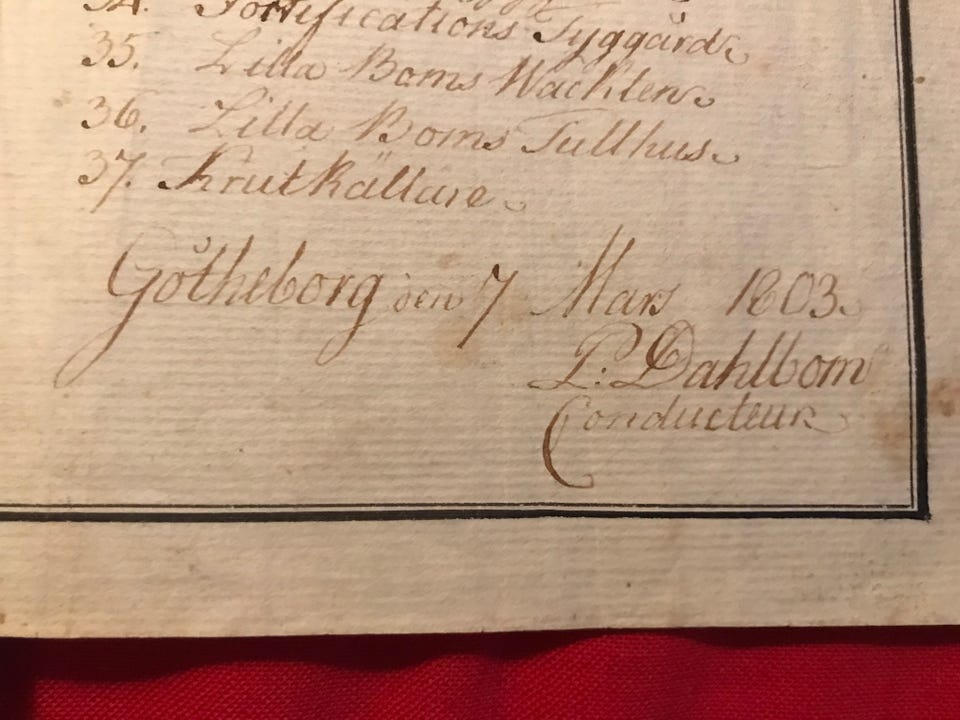 34. Fortifications Tyggård
35. Lilla Boms Wackten
36. Lilla Boms Tullhus
37. Krutkällare
Götheborg den 7 Mars 1803.
P: Dahlbom
Conducteur